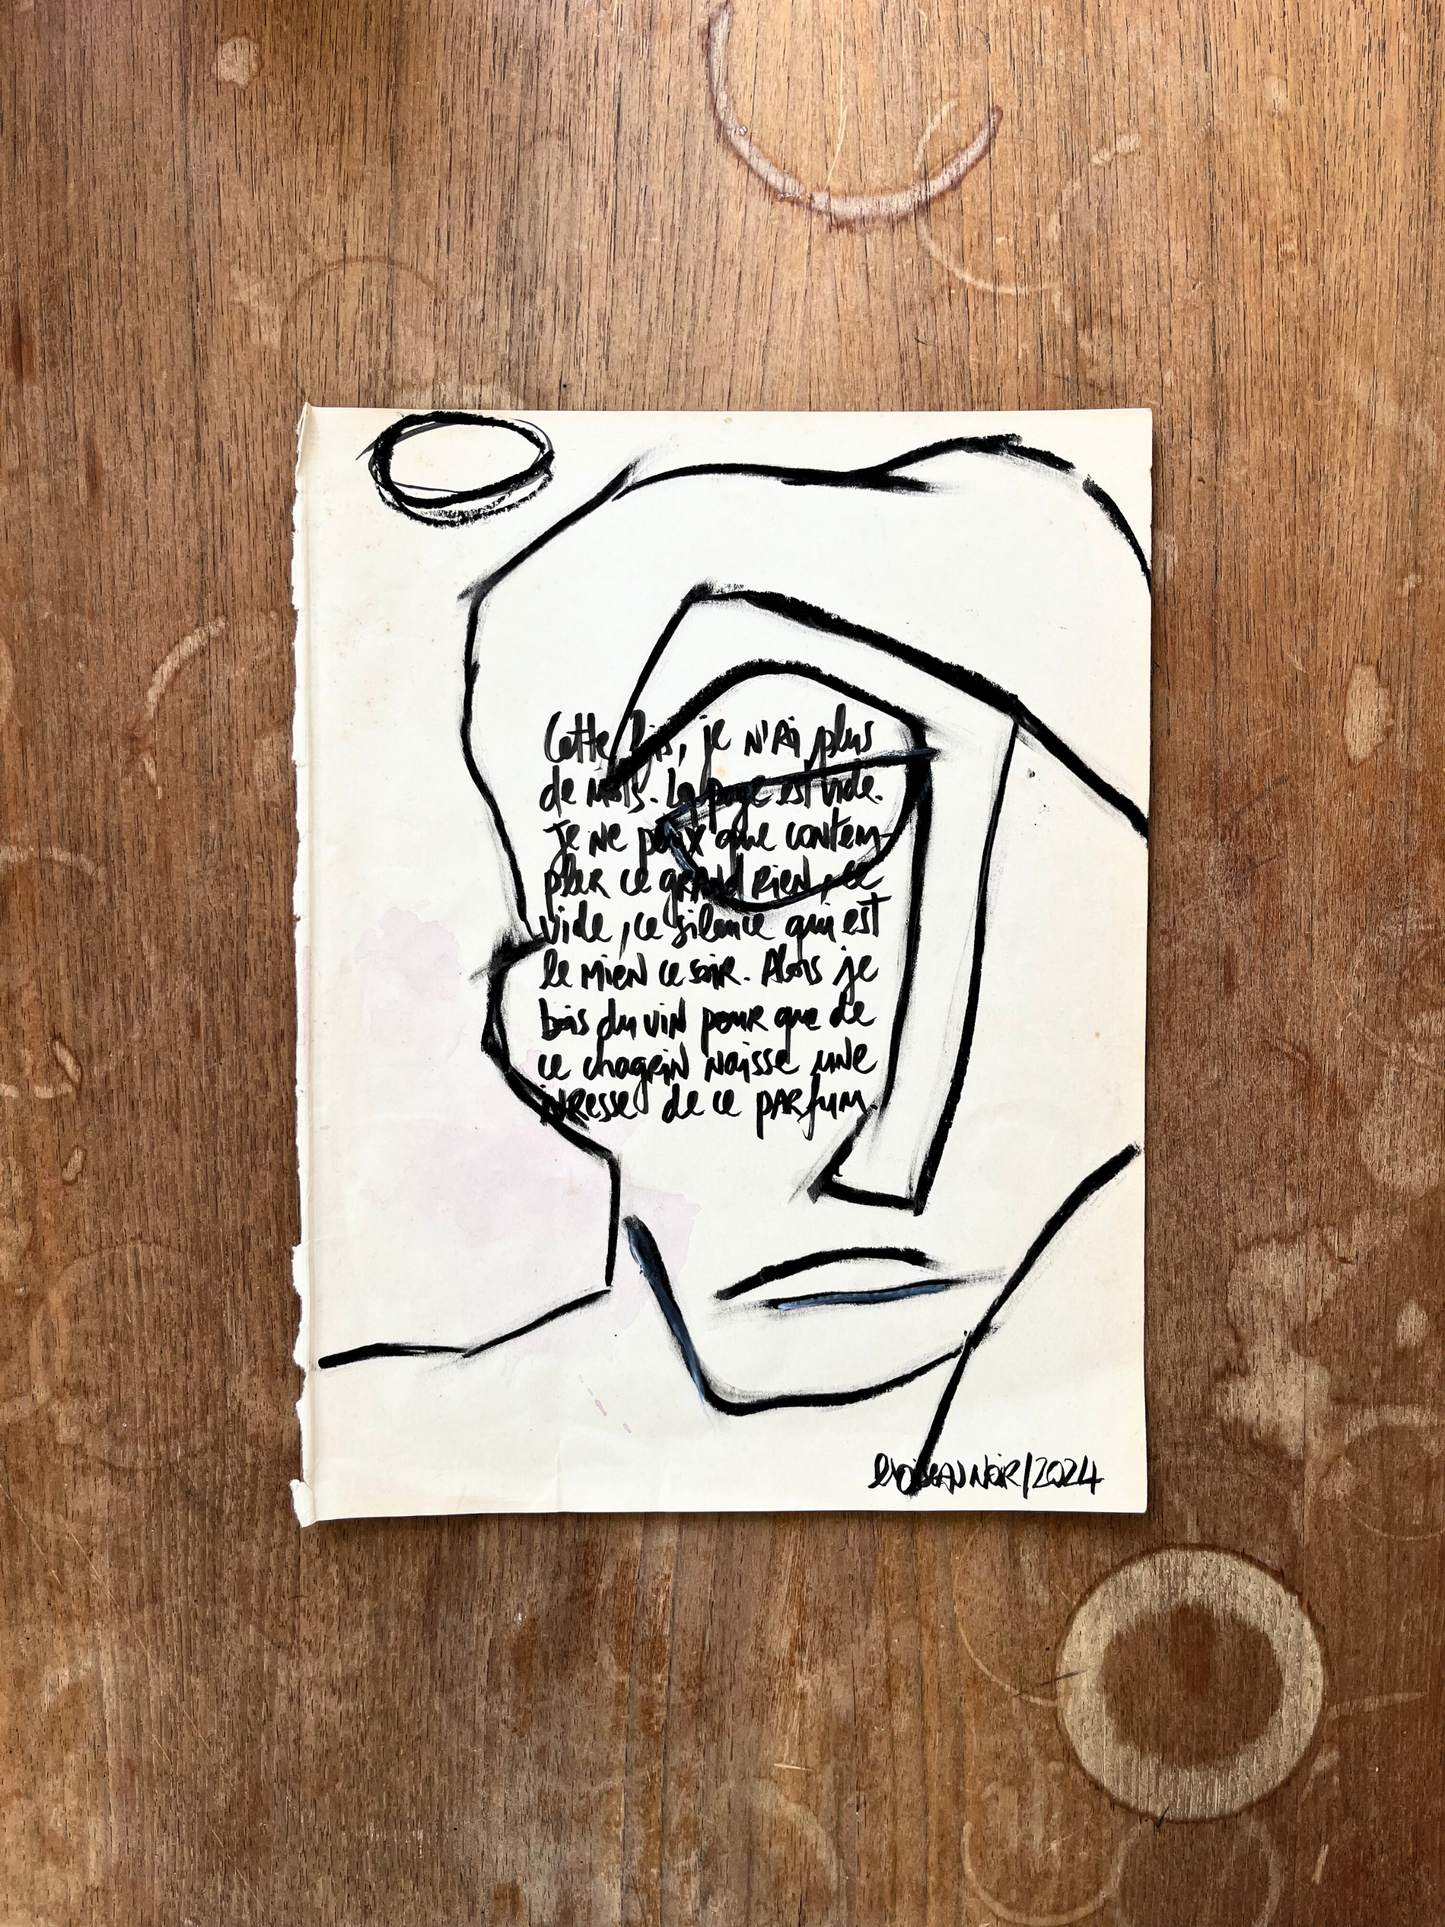 Cette fois, je n'ai plus
de mots. La page est vide.
Je ne peux que contem-
pler ce grand rien, ce
vide, ce silence qui est
le mien ce soir. Alors je
bois du vin pour que de
ce chagrin naisse une
ivresse de ce parfum.
l'OISEAU NOIR/2024